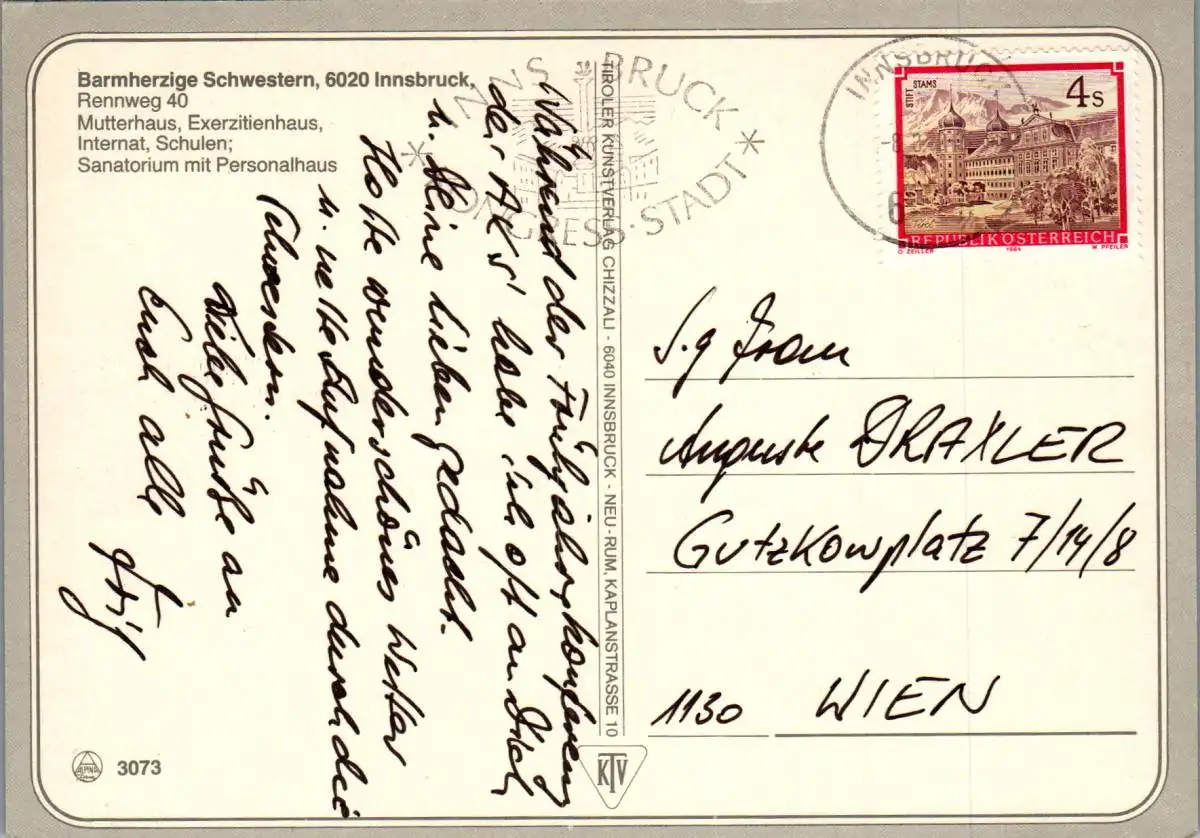 Barmherzige Schwestern, 6020 Innsbruck,
Rennweg 40
Mutterhaus, Exerzitienhaus,
Internat, Schulen;
Sanatorium mit Personalhaus
Während der Frühjahrskonferenz
der AKS' habe ich oft an Dich
u. Deine Lieben gedacht.
Hatte wunderschönes Wetter
u. nette Aufnahme durch die
Schwestern.
Viele Grüße an
Euch alle
INNSBRUCK
KONGRESS·STADT
TIROLER KUNSTVERLAG CHIZZALI - 6040 INNSBRUCK - NEU-RUM, KAPLANSTRASSE 10
INNSBRUCK
STIFT STAMS
4 S
REPUBLIK ÖSTERREICH
O. ZEILLER 1984 W. PFEILER
S.g Frau
Auguste DRAXLER
Gutzkowplatz 7/14/8
1130 WIEN
ALPINA
3073
KTV